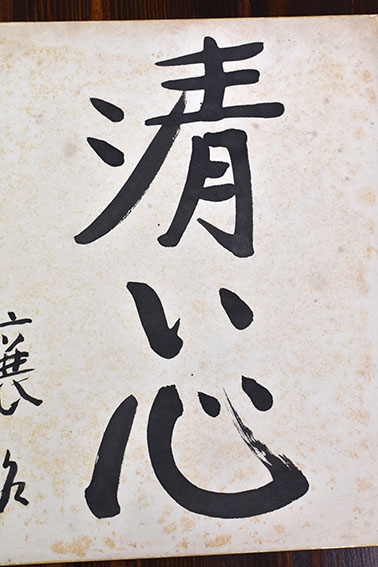 清い心